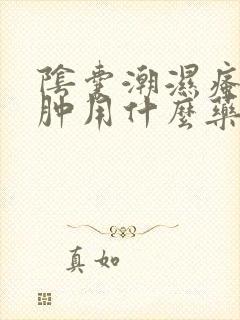 陰囊潮濕瘙
肿用什麼藥
真如